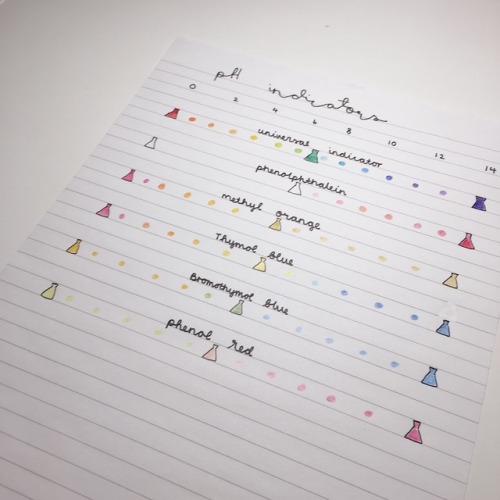 pH indicators
0 2 4 6 8 10 12 14
universal indicator
phenolphthalein
methyl orange
Thymol blue
Bromothymol blue
phenol red